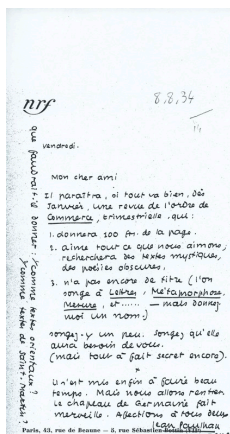 nrf
8.8.34
vendredi.
Mon cher ami
Il paraîtra, si tout va bien, dès
Janvier, une revue de l'ordre de
Commerce, trimestrielle, qui :
1. donnera 100 frs. de la page.
2. aime tout ce que nous aimons,
recherchera des textes mystiques,
des poésies obscures,
3. n'a pas encore de titre (l'on
songe à Lettres, Métamorphose,
Mesure, et ...... — mais donnez
moi un nom.)
songez-y un peu. Songez qu'elle
aura besoin de vous.
(mais tout à fait secret encore).
*
Il s'est mis enfin à faire beau
temps. Mais nous allons rentrer.
Le chapeau de Germaine fait
merveille. Affections à tous deux
Jean Paulhan
Paris, 43, rue de Beaune — 5, rue Sébastien-Bottin (VIIe)
que faudrait-il donner : comme textes orientaux ?
comme textes de Saint-Martin ?